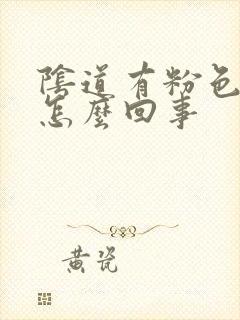 陰道有粉色
怎麼回事
黃瓷